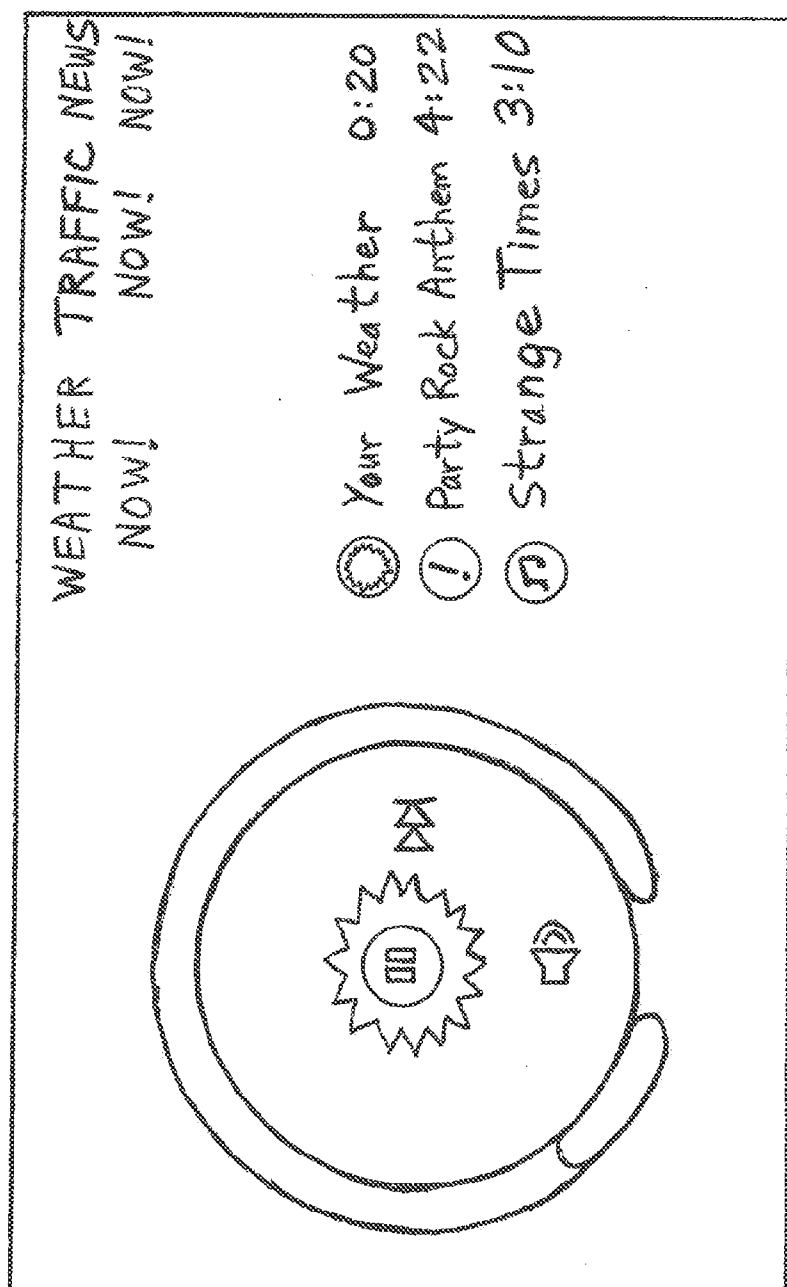 WEATHER TRAFFIC NEWS
NOW! NOW! NOW!
Your Weather 0:20
! Party Rock Anthem 4:22
Strange Times 3:10